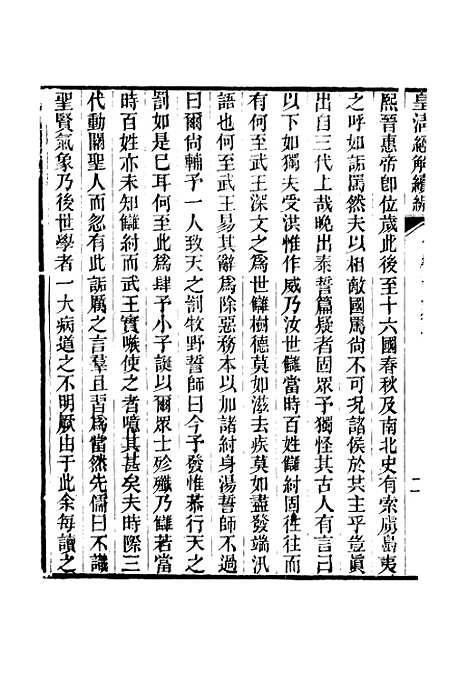 皇清經解續編
二
熙晉惠帝卽位歲此後至十六國春秋及南北史有索虜島夷
之呼如詬罵然夫以相敵國罵尙不可況諸侯於其主乎豈眞
出自三代上哉晚出泰誓篇疑者固眾予獨怪其古人有言曰
以下如獨夫受洪惟作威乃汝世讎當時百姓讎紂固往往而
有何至武王深文之爲世讎樹德莫如滋去疾莫如盡發端汎
語也何至武王易其辭爲除惡務本以加諸紂身湯誓師不過
曰爾尙輔予一人致天之罰牧野誓師曰今予發惟恭行天之
罰如是已耳何至此爲肆予小子誕以爾眾士殄殲乃讎若當
時百姓亦未知讎紂而武王實嗾使之者噫其甚矣夫時際三
代動關聖人而忽有此詬厲之言羣且習爲當然先儒曰不識
聖賢氣象乃後世學者一大病道之不明厥由于此余每讀之